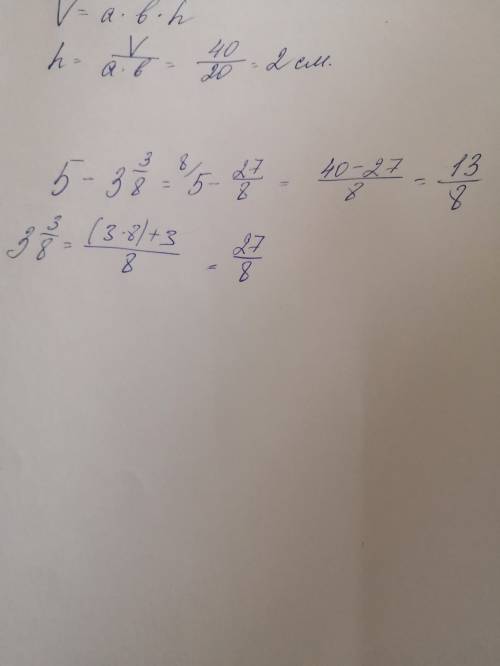 V = a · b · h
h = V/a·b = 40/20 = 2 см.
5 - 3 3/8 = 8/5 - 27/8 = 40-27/8 = 13/8
3 3/8 = (3·8)+3/8 = 27/8